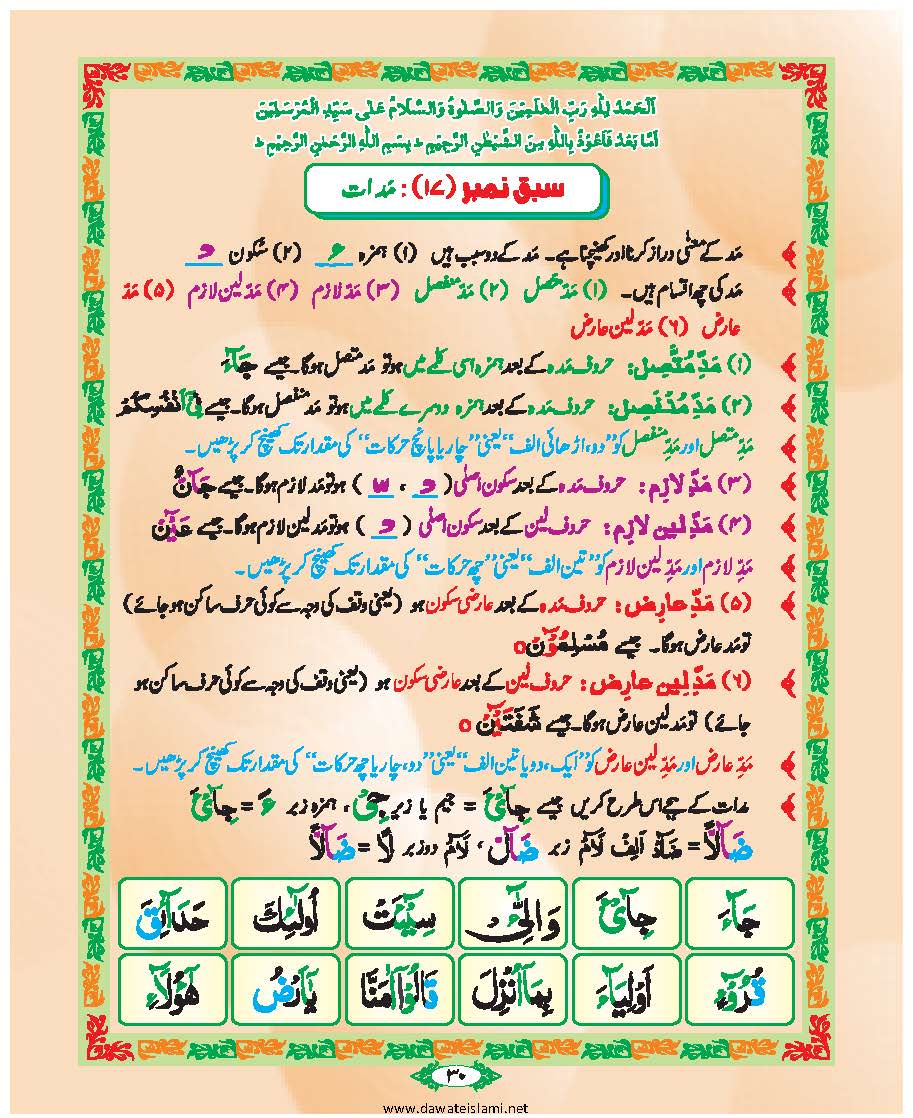 اَلْحَمْدُ لِلّٰهِ رَبِّ الْعٰلَمِيْنَ وَالصَّلٰوةُ وَالسَّلَامُ عَلٰى سَيِّدِ الْمُرْسَلِيْنَ
اَمَّا بَعْدُ فَاَعُوْذُ بِاللّٰهِ مِنَ الشَّيْطٰنِ الرَّجِيْمِ ط بِسْمِ اللّٰهِ الرَّحْمٰنِ الرَّحِيْمِ ط
سبق نمبر (۱۷) : مَدات
مَد کے معنٰی دراز کرنا اور کھینچنا ہے۔ مَد کے دو سبب ہیں (۱) ہمزہ ء (۲) سُکون ْ
مَد کی چھ اقسام ہیں۔ (۱) مَدِّ متصل (۲) مَدِّ منفصل (۳) مَدِّ لازم (۴) مَدِّ لین لازم (۵) مَدِّ
عارض (۶) مَدِّ لین عارض
(۱) مَدِّ مُتَّصِل: حروف مَدہ کے بعد ہمزہ اسی کلمے میں ہو تو مَد متصل ہوگا۔ جیسے جَآءَ
(۲) مَدِّ مُنْفَصِل: حروف مَدہ کے بعد ہمزہ دوسرے کلمے میں ہو تو مَد منفصل ہوگا۔ جیسے فِیْۤ اَنْفُسِكُمْ
مَدِّ متصل اور مَدِّ منفصل کو ”دو، اڑھائی الف“ یعنی ”چار یا پانچ حرکات“ کی مقدار تک کھینچ کر پڑھیں۔
(۳) مَدِّ لازِم: حروف مَدہ کے بعد سکون اصلی ( ْ ، ّ ) ہو تو مَد لازم ہوگا۔ جیسے جَآنٌّ
(۴) مَدِّ لین لازِم: حروف لین کے بعد سکون اصلی ( ْ ) ہو تو مَد لین لازم ہوگا۔ جیسے عَیْٓنْ
مَدِّ لازم اور مَدِّ لین لازم کو ”تین الف“ یعنی ”چھ حرکات“ کی مقدار تک کھینچ کر پڑھیں۔
(۵) مَدِّ عارِض: حروف مَدہ کے بعد عارضی سکون ہو (یعنی وقف کی وجہ سے کوئی حرف ساکن ہو جائے)
تو مَد عارض ہوگا۔ جیسے مُسْلِمُوْٓنْ ○
(۶) مَدِّ لین عارِض: حروف لین کے بعد عارضی سکون ہو (یعنی وقف کی وجہ سے کوئی حرف ساکن ہو
جائے) تو مَد لین عارض ہوگا۔ جیسے شَفَتَیْٓنْ ○
مَدِّ عارض اور مَدِّ لین عارض کو ”ایک، دو یا تین الف“ یعنی ”دو، چار یا چھ حرکات“ کی مقدار تک کھینچ کر پڑھیں۔
مدات کے ہجے اس طرح کریں جیسے جِآیْءَ = جیم یا زیر جِیْٓ، ہمزہ زبر ءَ = جِآیْءَ
ضَآلًّا = ضَاد اَلِف لَامْ زبر ضَآلْ، لَامْ دو زبر لًا = ضَآلًّا
جَآءَ جِآیْءَ وَالِّٰٓیْٔ سِیْٓئَتْ اُولٰٓئِكَ حَدَآئِقَ
قُرُوْٓءٍ اَوْلِیَآءَ بِمَاۤ اُنْزِلَ قَالُوْۤا اٰمَنَّا یٰۤاَرْضُ هٰۤؤُلَآءِ
۳۰
www.dawateislami.net